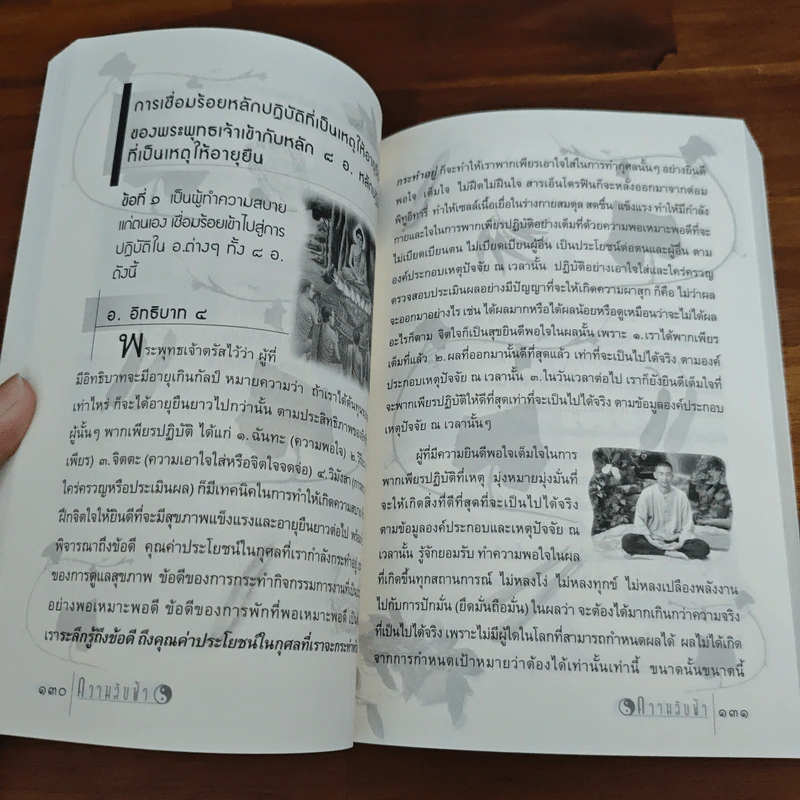 การเชื่อมร้อยหลักปฏิบัติที่เป็นเหตุให้อายุ
ของพระพุทธเจ้าเข้ากับหลัก ๘ อ. หลัก
ที่เป็นเหตุให้อายุยืน
ข้อที่ ๑ เป็นผู้ทำความสบาย
แก่ตนเอง เชื่อมร้อยเข้าไปสู่การ
ปฏิบัติใน อ.ต่างๆ ทั้ง ๘ อ.
ดังนี้
๑. อิทธิบาท ๔
พระพุทธเจ้าตรัสไว้ว่า ผู้ที่
มีอิทธิบาทจะมีอายุเกินกัลป์ หมายความว่า ถ้าเราได้ต้นทุนอายุ
เท่าไหร่ ก็จะได้อายุยืนยาวไปกว่านั้น ตามประสิทธิภาพของ
ผู้นั้นๆ พากเพียรปฏิบัติ ได้แก่ ๑.ฉันทะ (ความพอใจ) ๒.
เพียร) ๓.จิตตะ (ความเอาใจใส่หรือจิตใจจดจ่อ) ๔.วิมังสา
ใคร่ครวญหรือประเมินผล) ก็มีเทคนิคในการทำให้เกิดความสบาย
ฝึกจิตใจให้ยินดีที่จะมีสุขภาพแข็งแรงและอายุยืนยาวต่อไป
พิจารณาถึงข้อดี คุณค่าประโยชน์ในกุศลที่เรากำลังกระทำอยู่
ของการดูแลสุขภาพ ข้อดีของการกระทำกิจกรรมการงานที่เป็น
อย่างพอเหมาะพอดี ข้อดีของการพักที่พอเหมาะพอดี
เราระลึกรู้ถึงข้อดี ถึงคุณค่าประโยชน์ในกุศลที่เราจะกระทำ
๑๓๐ ความลับฟ้า
กระทำอยู่ ก็จะทำให้เราพากเพียรเอาใจใส่ในการทำกุศลนั้นๆ อย่างยินดี
พอใจ เต็มใจ ไม่ฝืดไม่ฝืนใจ สารเอ็นโดรฟินก็จะหลั่งออกมาจากต่อม
พิทูอิทารี่ ทำให้เซลล์เนื้อเยื่อในร่างกายสมดุล สดชื่น แข็งแรง ทำให้มีกำลัง
กายและใจในการพากเพียรปฏิบัติอย่างเต็มที่ด้วยความพอเหมาะพอดีที่จะ
ไม่เบียดเบียนตน ไม่เบียดเบียนผู้อื่น เป็นประโยชน์ต่อตนและผู้อื่น ตาม
องค์ประกอบเหตุปัจจัย ณ เวลานั้น ปฏิบัติอย่างเอาใจใส่และใคร่ครวญ
ตรวจสอบประเมินผลอย่างมีปัญญาที่จะให้เกิดความผาสุก ก็คือ ไม่ว่าผล
จะออกมาอย่างไร เช่น ได้ผลมากหรือได้ผลน้อยหรือดูเหมือนว่าจะไม่ได้ผล
อะไรก็ตาม จิตใจก็เป็นสุขยินดีพอใจในผลนั้น เพราะ ๑.เราได้พากเพียร
เต็มที่แล้ว ๒.ผลที่ออกมานั้นดีที่สุดแล้ว เท่าที่จะเป็นไปได้จริง ตามองค์
ประกอบเหตุปัจจัย ณ เวลานั้น ๓.ในวันเวลาต่อไป เราก็ยังยินดีเต็มใจที่
จะพากเพียรปฏิบัติให้ดีที่สุดเท่าที่จะเป็นไปได้จริง ตามข้อมูลองค์ประกอบ
เหตุปัจจัย ณ เวลานั้นๆ
ผู้ที่มีความยินดีพอใจเต็มใจในการ
พากเพียรปฏิบัติที่เหตุ มุ่งหมายมุ่งมั่นที่
จะให้เกิดสิ่งที่ดีที่สุดที่จะเป็นไปได้จริง
ตามข้อมูลองค์ประกอบและเหตุปัจจัย ณ
เวลานั้น รู้จักยอมรับ ทำความพอใจในผล
ที่เกิดขึ้นทุกสถานการณ์ ไม่หลงโง่ ไม่หลงทุกข์ ไม่หลงเปลืองพลังงาน
ไปกับการปักมั่น (ยึดมั่นถือมั่น) ในผลว่า จะต้องได้มากเกินกว่าความจริง
ที่เป็นไปได้จริง เพราะไม่มีผู้ใดในโลกที่สามารถกำหนดผลได้ ผลไม่ได้เกิด
จากการกำหนดเป้าหมายว่าต้องได้เท่านั้นเท่านี้ ขนาดนั้นขนาดนี้
ความลับฟ้า ๑๓๑